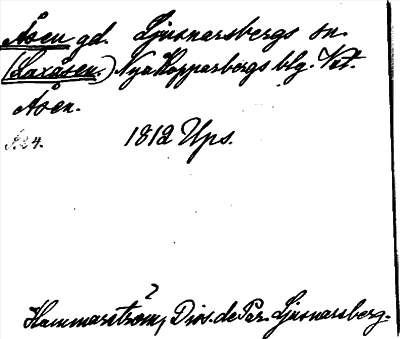 Åsen gd. Ljusnarsbergs sn.
(Laxåsen.) Nya Kopparbergs blg. Vst.
Åsen.
S. 24. 1812 Ups.
?
Hammarström, Diss. de Par. Ljusnarsberg.